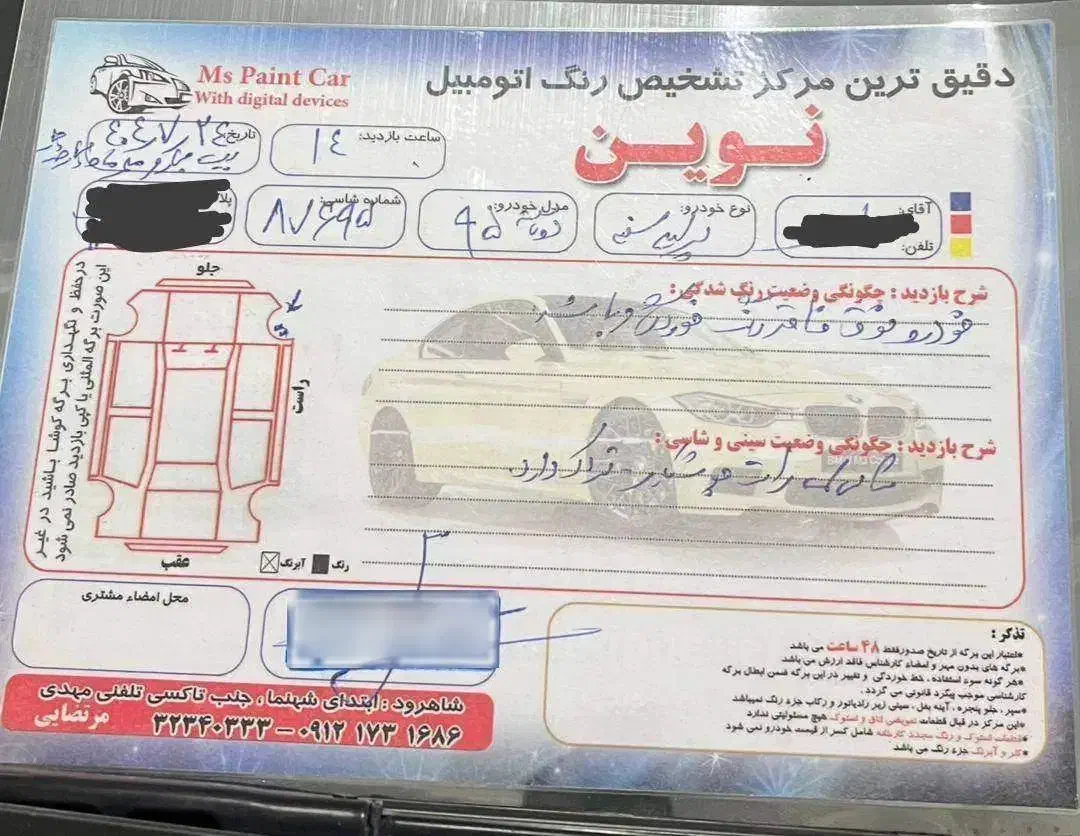 دقیق ترین مرکز تشخیص رنگ اتومبیل
نوین
Ms Paint Car
With digital devices
تاریخ:
ساعت بازدید: ۱۴
آقای:
تلفن:
نوع خودرو:
مدل خودرو: ۹۵
شماره شاسی: ۸۷۶۹۵
شرح بازدید: چگونگی وضعیت رنگ شدگی:
خودرو فوق فاقد رنگ خوردگی میباشد
شرح بازدید: چگونگی وضعیت سینی و شاسی:
ترک دارد
جلو
راست
عقب
رنگ
آبرنگ
در حفظ و نگهداری برگه کوشا باشید در غیر
این صورت برگه المثنی یا کپی بازدید صادر نمی شود
محل امضاء مشتری
تذکر:
*اعتبار این برگه از تاریخ صدور فقط ۴۸ ساعت می باشد
*برگه های بدون مهر و امضاء کارشناس فاقد ارزش می باشد
*هر گونه سوء استفاده، خط خوردگی و تغییر در این برگه ضمن ابطال برگه
کارشناسی موجب پیگرد قانونی می گردد.
*سپر، جلو پنجره، آینه بغل، سینی زیر رادیاتور و رکاب جزء رنگ نمیباشد
*این مرکز در قبال قطعات تعویضی اتاق و استوک هیچ مسئولیتی ندارد
*قطعات استوک و رنگ مجدد کارخانه شامل کسر از قیمت خودرو نمی شود
*کلر و آبرنگ جزء رنگ می باشد
شاهرود: ابتدای شهنما، جنب تاکسی تلفنی مهدی
۳۲۳۴۰۳۳۳ – ۰۹۱۲ ۱۷۳ ۱۶۸۶
مرتضایی